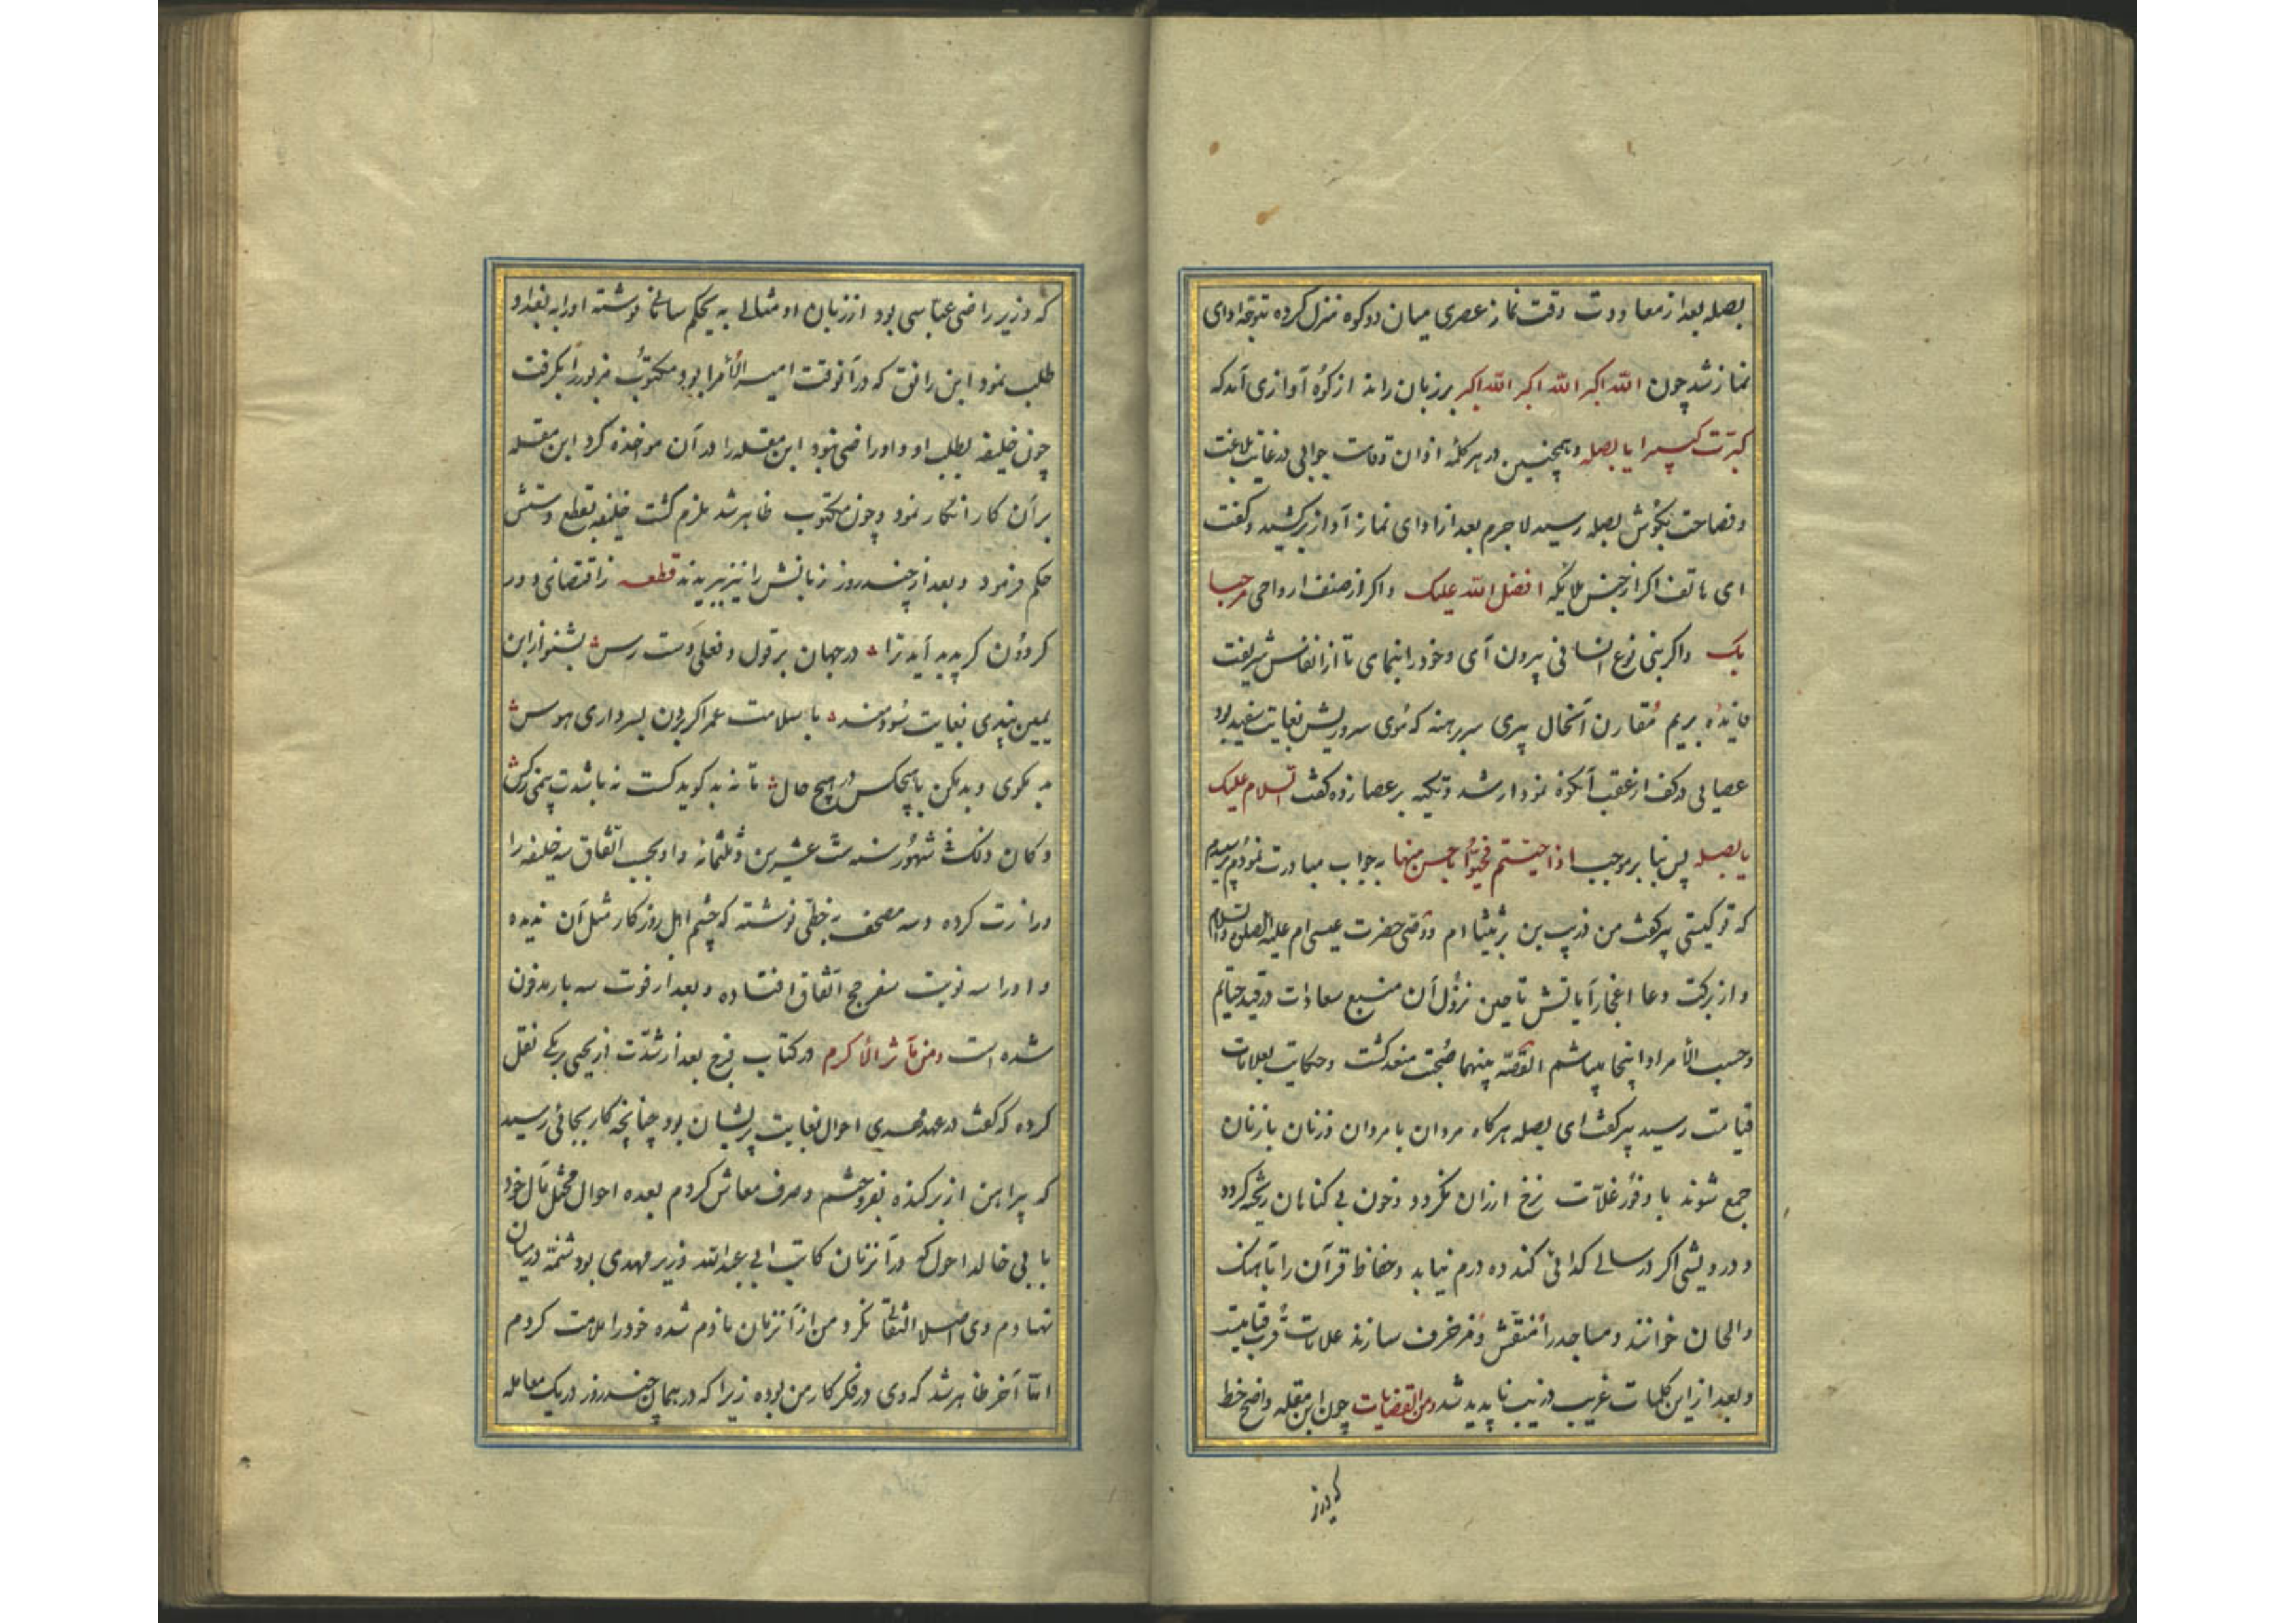 بصله بعد از معاودت وقت نماز عصری میان دو کوه منزل کرده متوجه ادای
نماز شد چون الله اکبر الله اکبر الله اکبر بر زبان راند از کوه آوازی آمد که
کبرت کبیرا یا بصله و همچنین در هر کلمه اذان وقامت جوابی در غایت بلاغت
و فصاحت بکوش بصله رسید لاجرم بعد از ادای نماز آواز برکشید و کفت
ای هاتف اکر از جنس ملایکه افضل الله علیک و اکر از صنف ارواحی مرحبا
بک و اکر بنی نوع انسانی بیرون آی و خود را بنمای تا از انفاس شریفت
فایده بریم مقارن آنحال پیری سر برهنه که موی سر و ریش بغایت سفید بود
عصایی در کف از عقب آنکوه نمودار شد و تکیه بر عصا زده کفت السلام علیک
یا بصله پس بنا بر موجب اذا حییتم فحیوا باحسن منها به جواب مبادرت نمودم پرسیدم
که تو کیستی پیر کفت من ذریب بن برثیثا ام و وصی حضرت عیسی ام علیه الصلوة والسلام
و از برکت دعا اعجاز آیاتش تا حین نزول آن منبع سعادات در قید حیاتم
و حسب الأمر او اینجا میباشم القصه بینهما صحبت منعقد کشت و حکایت بعلامات
قیامت رسید پیر کفت ای بصله هرکاه مردان با مردان و زنان با زنان
جمع شوند با وفور غلات نرخ ارزان نکردد و خون بی کناهان ریخته کردد
و درویشی اکر در سالی کدائی کند ده درم نیابد و حفاظ قرآن را بآهنک
والحان خوانند و مساجد را منقش و مزخرف سازند علامات قرب قیامیت
و بعد از این کلمات غریب ذریب ناپدید شد ومن القضایات چون ابن مقله واضح خط
که وزیر
که وزیر راضی عباسی بود از زبان او مثالی به یحکم ماکانی نوشته او را به بغداد
طلب نمود ابن رائق که در آنوقت امیر الأمرا بود مکتوب مزبور را بکرفت
چون خلیفه بطلب او و او راضی نبود ابن مقله را در آن مواخذه کرد ابن مقله
بر آن کار انکار نمود و چون مکتوب ظاهر شد ملزم کشت خلیفه بقطع دستش
حکم فرمود و بعد از چند روز زبانش را نیز ببریدند قطعه ز اقتضای دور
کردون کر پدید آید ترا در جهان بر قول و فعلی دست رس بشنو از ابن
یمین پندی بغایت سودمند با سلامت عمر اکر بردن بسر داری هوس
بد مکوی و بد مکن با هیچکس در هیچ حال تا نه بد کوید کست نه باشدت بیمی ز کس
و کان ذلک فی شهور سنه ست عشرین و ثلثمائه و او بحسب اتفاق سه خلیفه را
وزارت کرده و سه مصحف به خطی نوشته که چشم اهل روزکار مثل آن ندیده
و او را سه نوبت سفر حج اتفاق افتاده و بعد از فوت سه بار مدفون
شده است ومن مآثر الأکرم در کتاب فرج بعد از شدت از یحیی برمکی نقل
کرده که کفت در عهد مهدی احوال بغایت پریشان بود چنانچه کار بجائی رسید
که پیراهن از بر کنده بفروختم و صرف معاش کردم بعده احوال مختل مآل خود
با بی خالد احول که در آنزمان کاتب ابی عبدالله وزیر مهدی بود شمّه در میان
نهادم وی اصلا التفات نکرد من از آنزمان نادم شده خود را ملامت کردم
امّا آخر ظاهر شد که وی در فکر کار من بوده زیرا که در همان چند روز در یک معامله